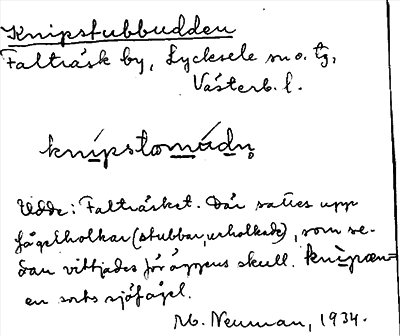 Knipstubbudden
Falträsk by, Lycksele sn o. tg,
Västerb. l.
knipstomúdn̥
Udde: Falträsket. Där sattes upp
fågelholkar (stubbar, urholkade), som se-
dan vittjades för äggens skull. knipæn =
en sorts sjöfågel.
M. Neuman, 1934.